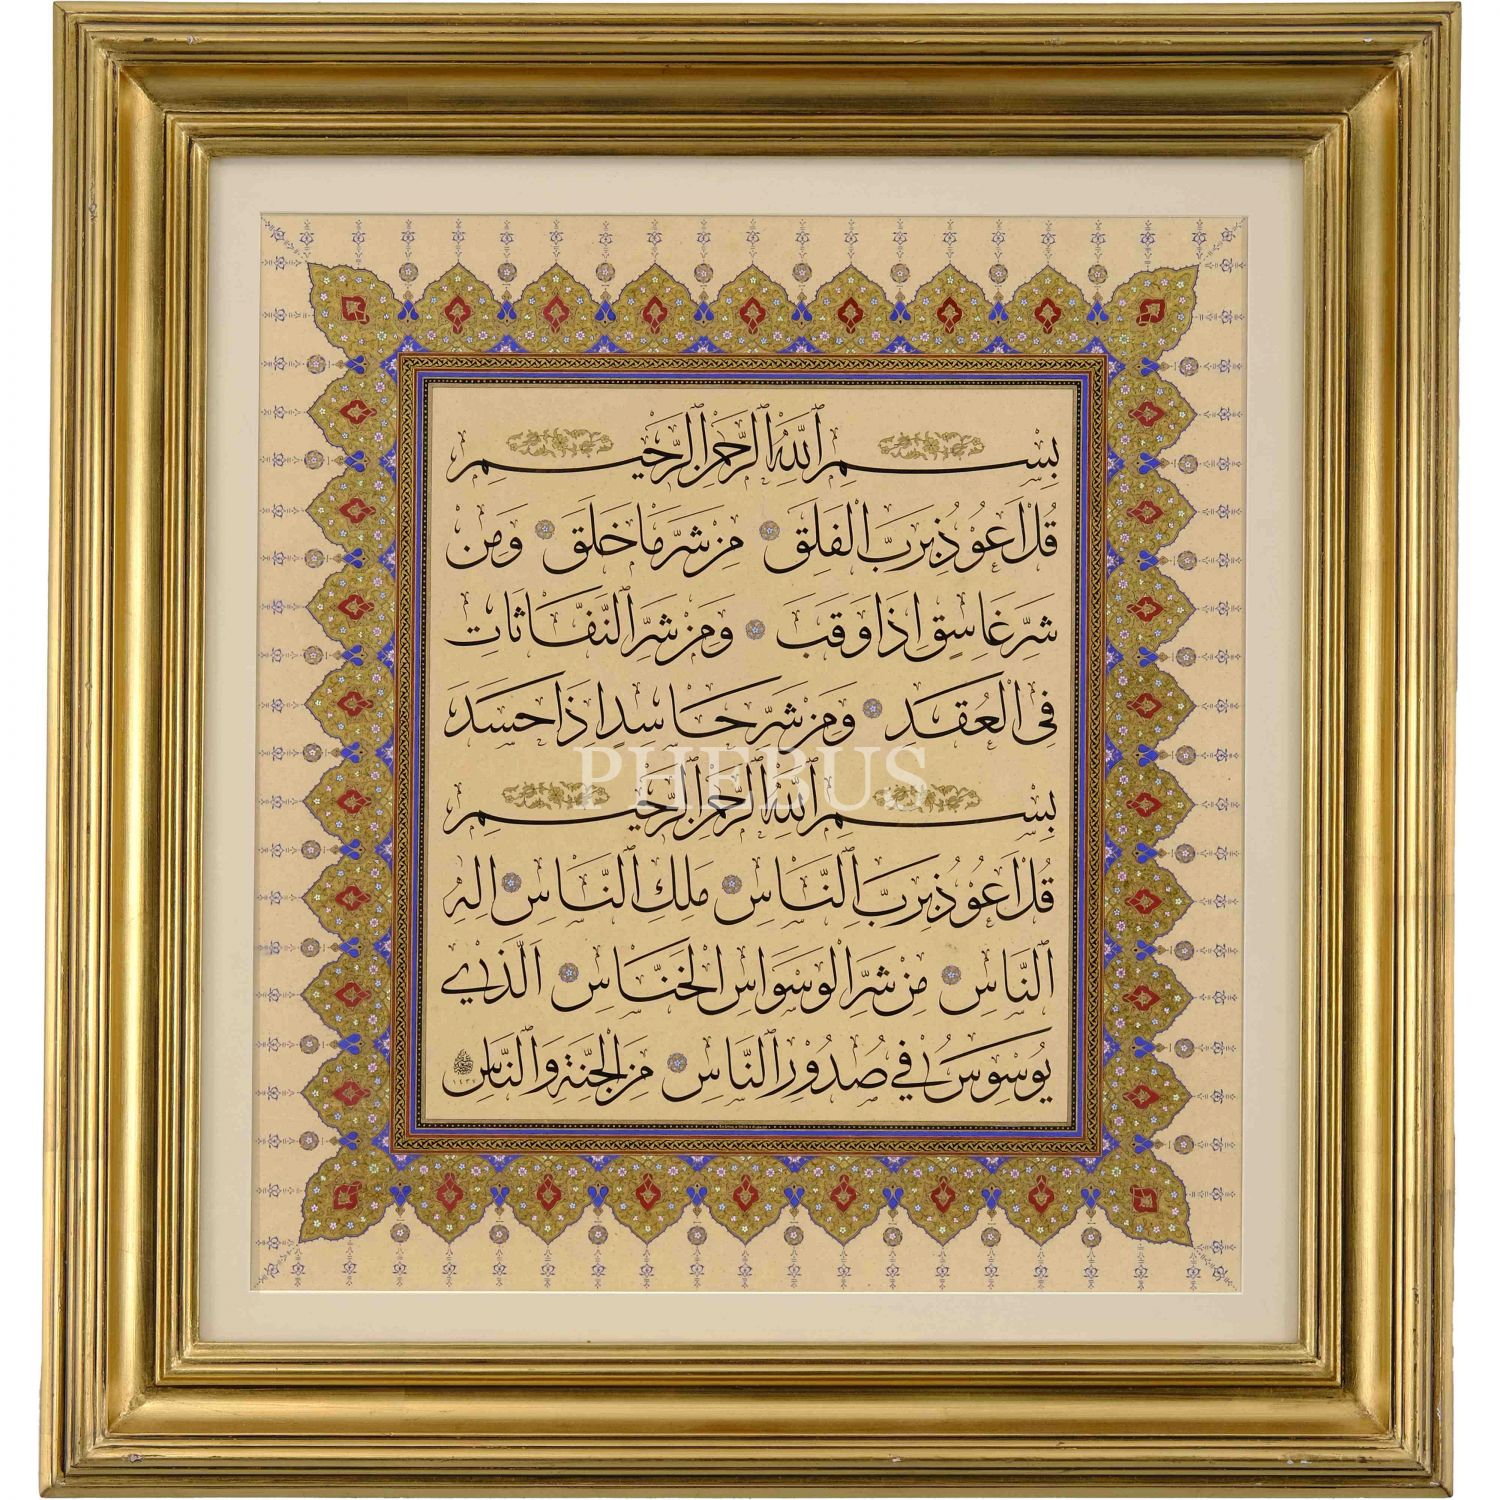 بِسْمِ اللّٰهِ الرَّحْمٰنِ الرَّحيمِ
قُلْ اَعُوذُ بِرَبِّ الْفَلَقِ مِنْ شَرِّ مَا خَلَقَ وَمِنْ
شَرِّ غَاسِقٍ اِذَا وَقَبَ وَمِنْ شَرِّ النَّفَّاثَاتِ
فِى الْعُقَدِ وَمِنْ شَرِّ حَاسِدٍ اِذَا حَسَدَ
PHEBUS
بِسْمِ اللّٰهِ الرَّحْمٰنِ الرَّحيمِ
قُلْ اَعُوذُ بِرَبِّ النَّاسِ مَلِكِ النَّاسِ اِلٰهِ
النَّاسِ مِنْ شَرِّ الْوَسْوَاسِ الْخَنَّاسِ الَّذي
يُوَسْوِسُ في صُدُورِ النَّاسِ مِنَ الْجِنَّةِ وَالنَّاسِ
١٤٣٧